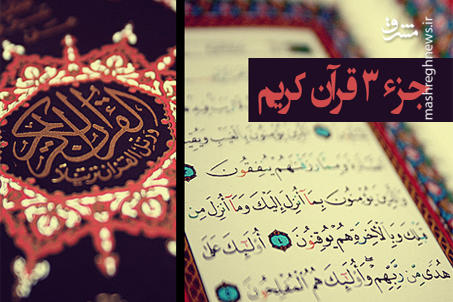 مشرق
mashreghnews.ir
جزء ۳ قرآن کریم
القرآن الكريم
ورتل القرآن ترتيلا
وَمِمَّا رَزَقْنَاهُمْ يُنفِقُونَ
يُؤْمِنُونَ بِمَا أُنزِلَ إِلَيْكَ وَمَا أُنزِلَ مِن
قَبْلِكَ وَبِالْآخِرَةِ هُمْ يُوقِنُونَ ٤ أُولَٰئِكَ عَلَىٰ
هُدًى مِّن رَّبِّهِمْ وَأُولَٰئِكَ هُمُ الْمُفْلِحُونَ